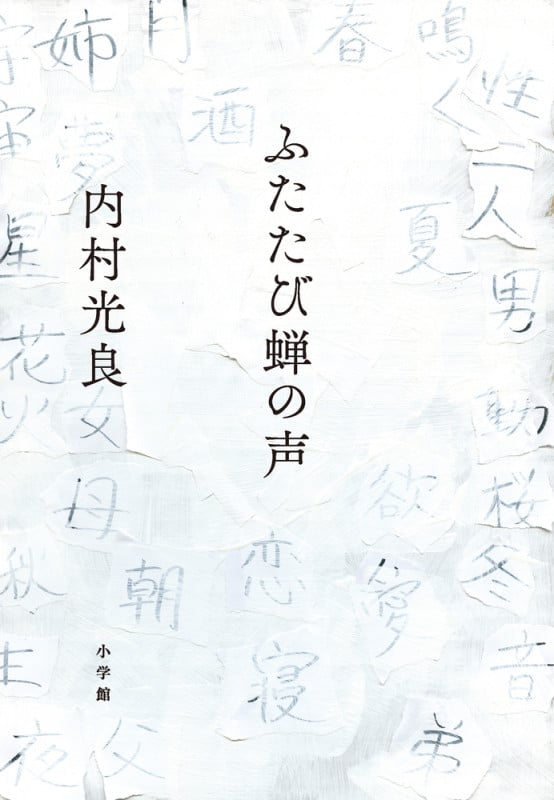 ふたたび蝉の声
内村光良
小学館
姉
月
春
鳴く
性
宇宙
夢
酒
二人
星
夏
男
花火
女
動
母
欲
桜
秋
朝
恋
愛
冬
生
寝
音
夜
父
弟